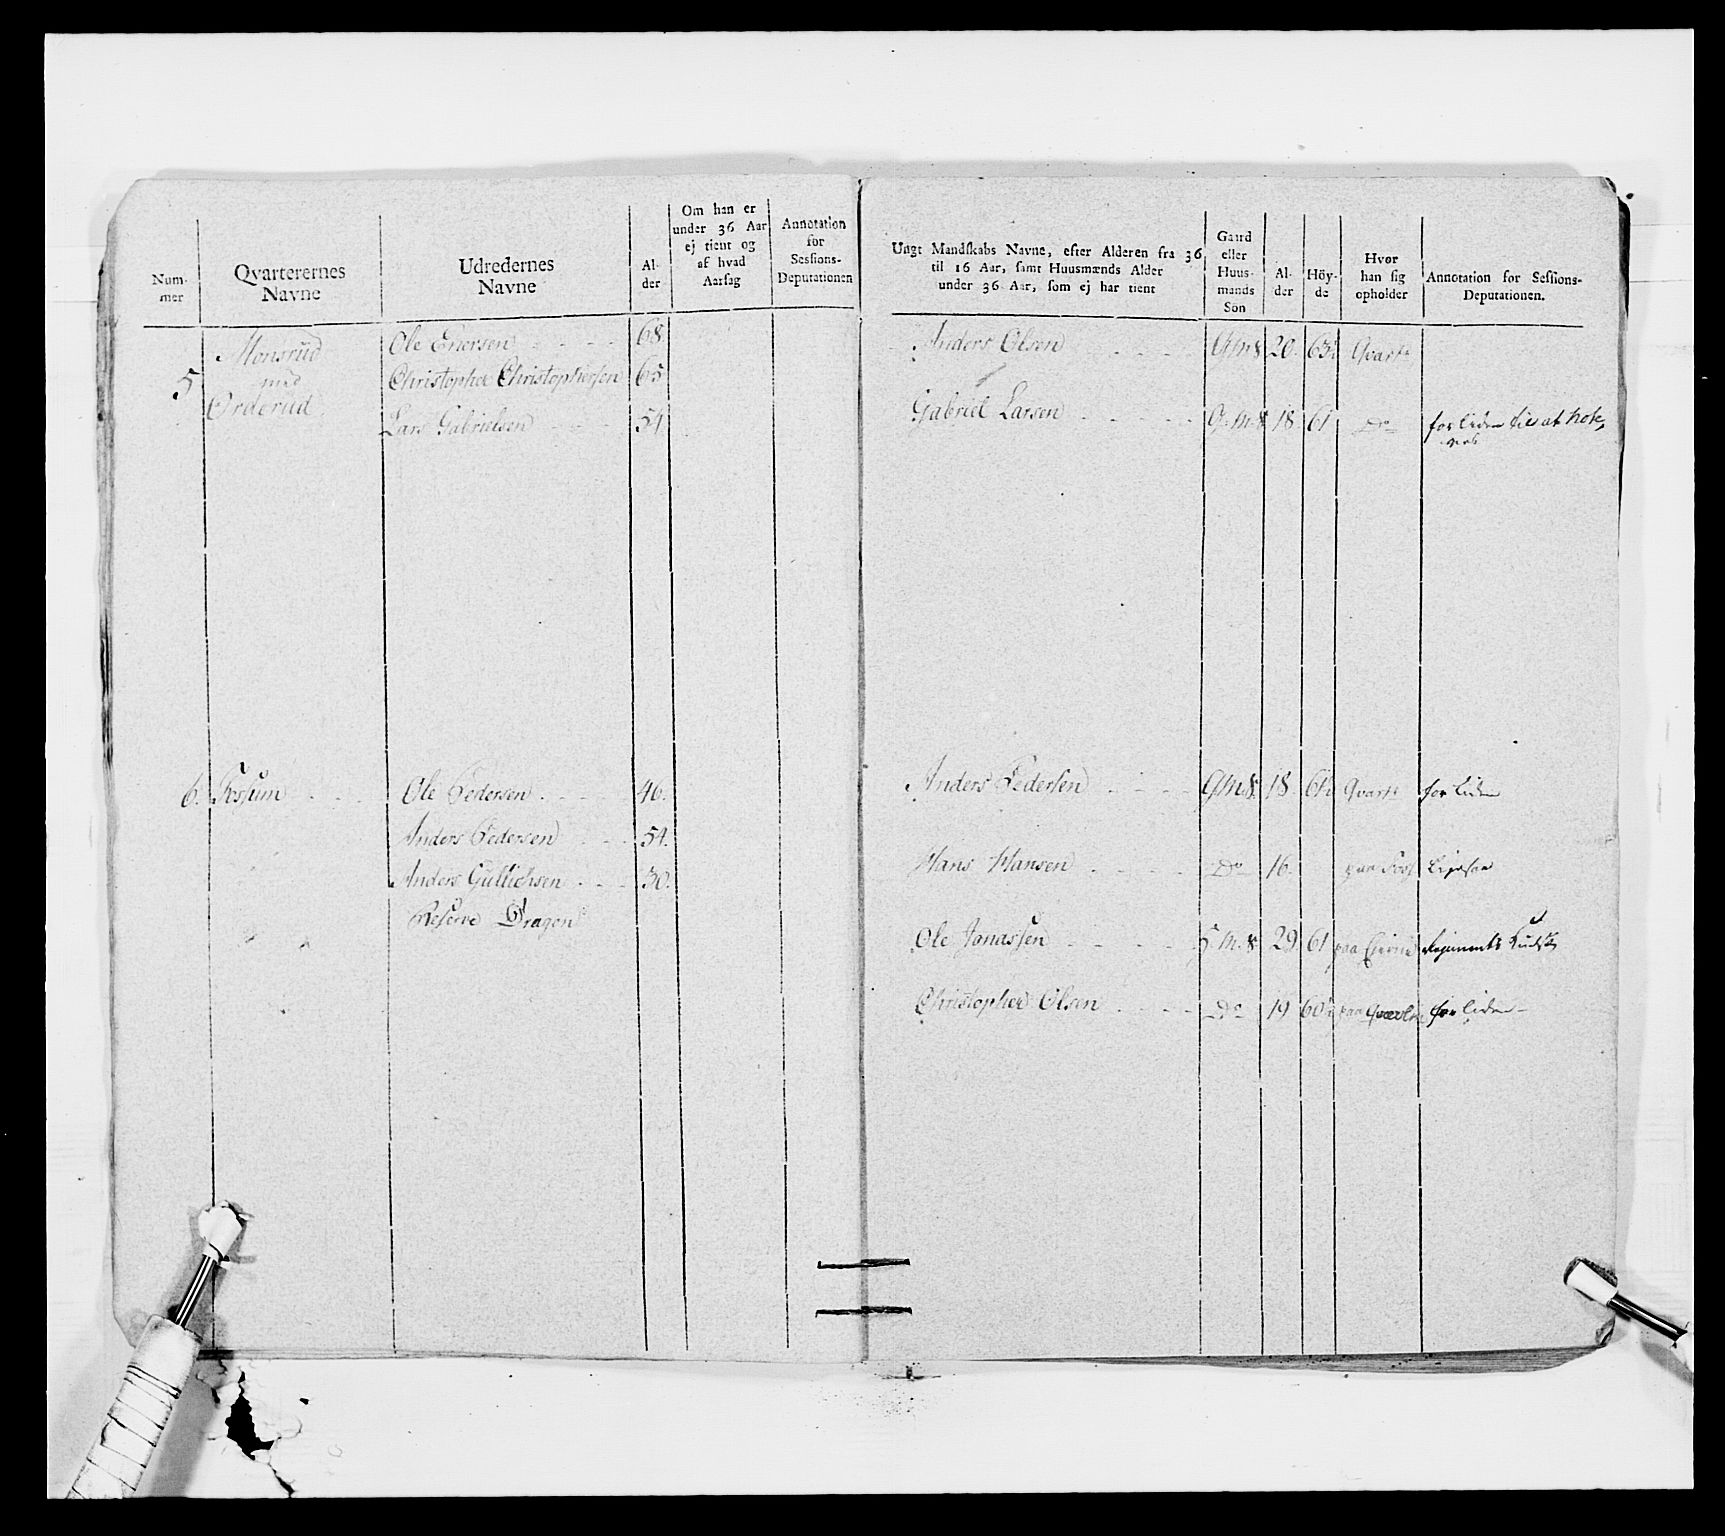 Num-
mer
Qvarterernes
Navne
Udredernes
Navne
Al-
der
Om han er
under 36 Aar
ej tient og
af hvad
Aarsag
Annotation
for
Sessions-
Deputationen
5
Monsrud
med
Orderud
Ole Enersen
68
Christopher Christophersen
65
Lars Gabrielsen
54
6.
Fossum
Ole Pedersen
46.
Anders Pedersen
54.
Anders Gullichsen
30.
Reserve Dragon
Ungt Mandskabs Navne, efter Alderen fra 36
til 16 Aar, samt Huusmænds Alder
under 36 Aar, som ej har tient
Gaard
eller
Huus-
mands
Sön
Al-
der
Höy-
de
Hvor
han sig
opholder
Annotation for Sessions-
Deputationen.
Anders Olsen
G.m.S.
20.
63½
Qvart:
Gabriel Larsen
G.m.S.
18
61
Do
for liden til at
Anders Pedersen
G.M.S.
18.
61½
Qvart:
for liden
Hans Hansen
Do
16.
Ligesaa
Ole Janassen
H.M.S.
29
61
paa
Regiments Kudsk
Christopher Olsen
Do
19
60½
paa
for liden